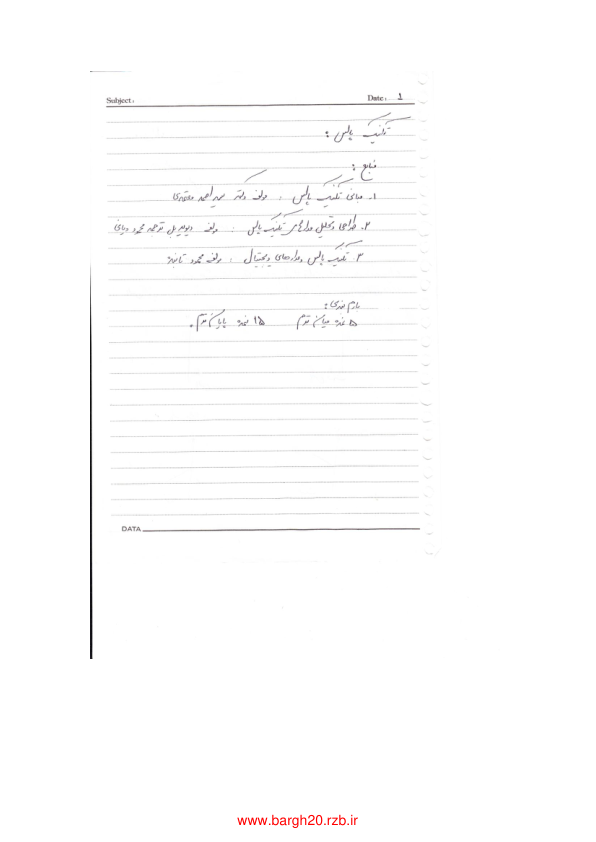 Subject: Date: 1
تکنیک پالس :
منابع :
۱. مبانی تکنیک پالس : مولف دکتر سید احمد معتمدی
۲. طراحی و تحلیل مدارهای تکنیک پالس : مولف دیوید بل ترجمه محمود دیانی
۳ تکنیک پالس و مدارهای دیجیتال : مولف محمود
بارم بندی :
۵ نمره میان ترم ۱۵ نمره پایان ترم .
DATA
www.bargh20.rzb.ir